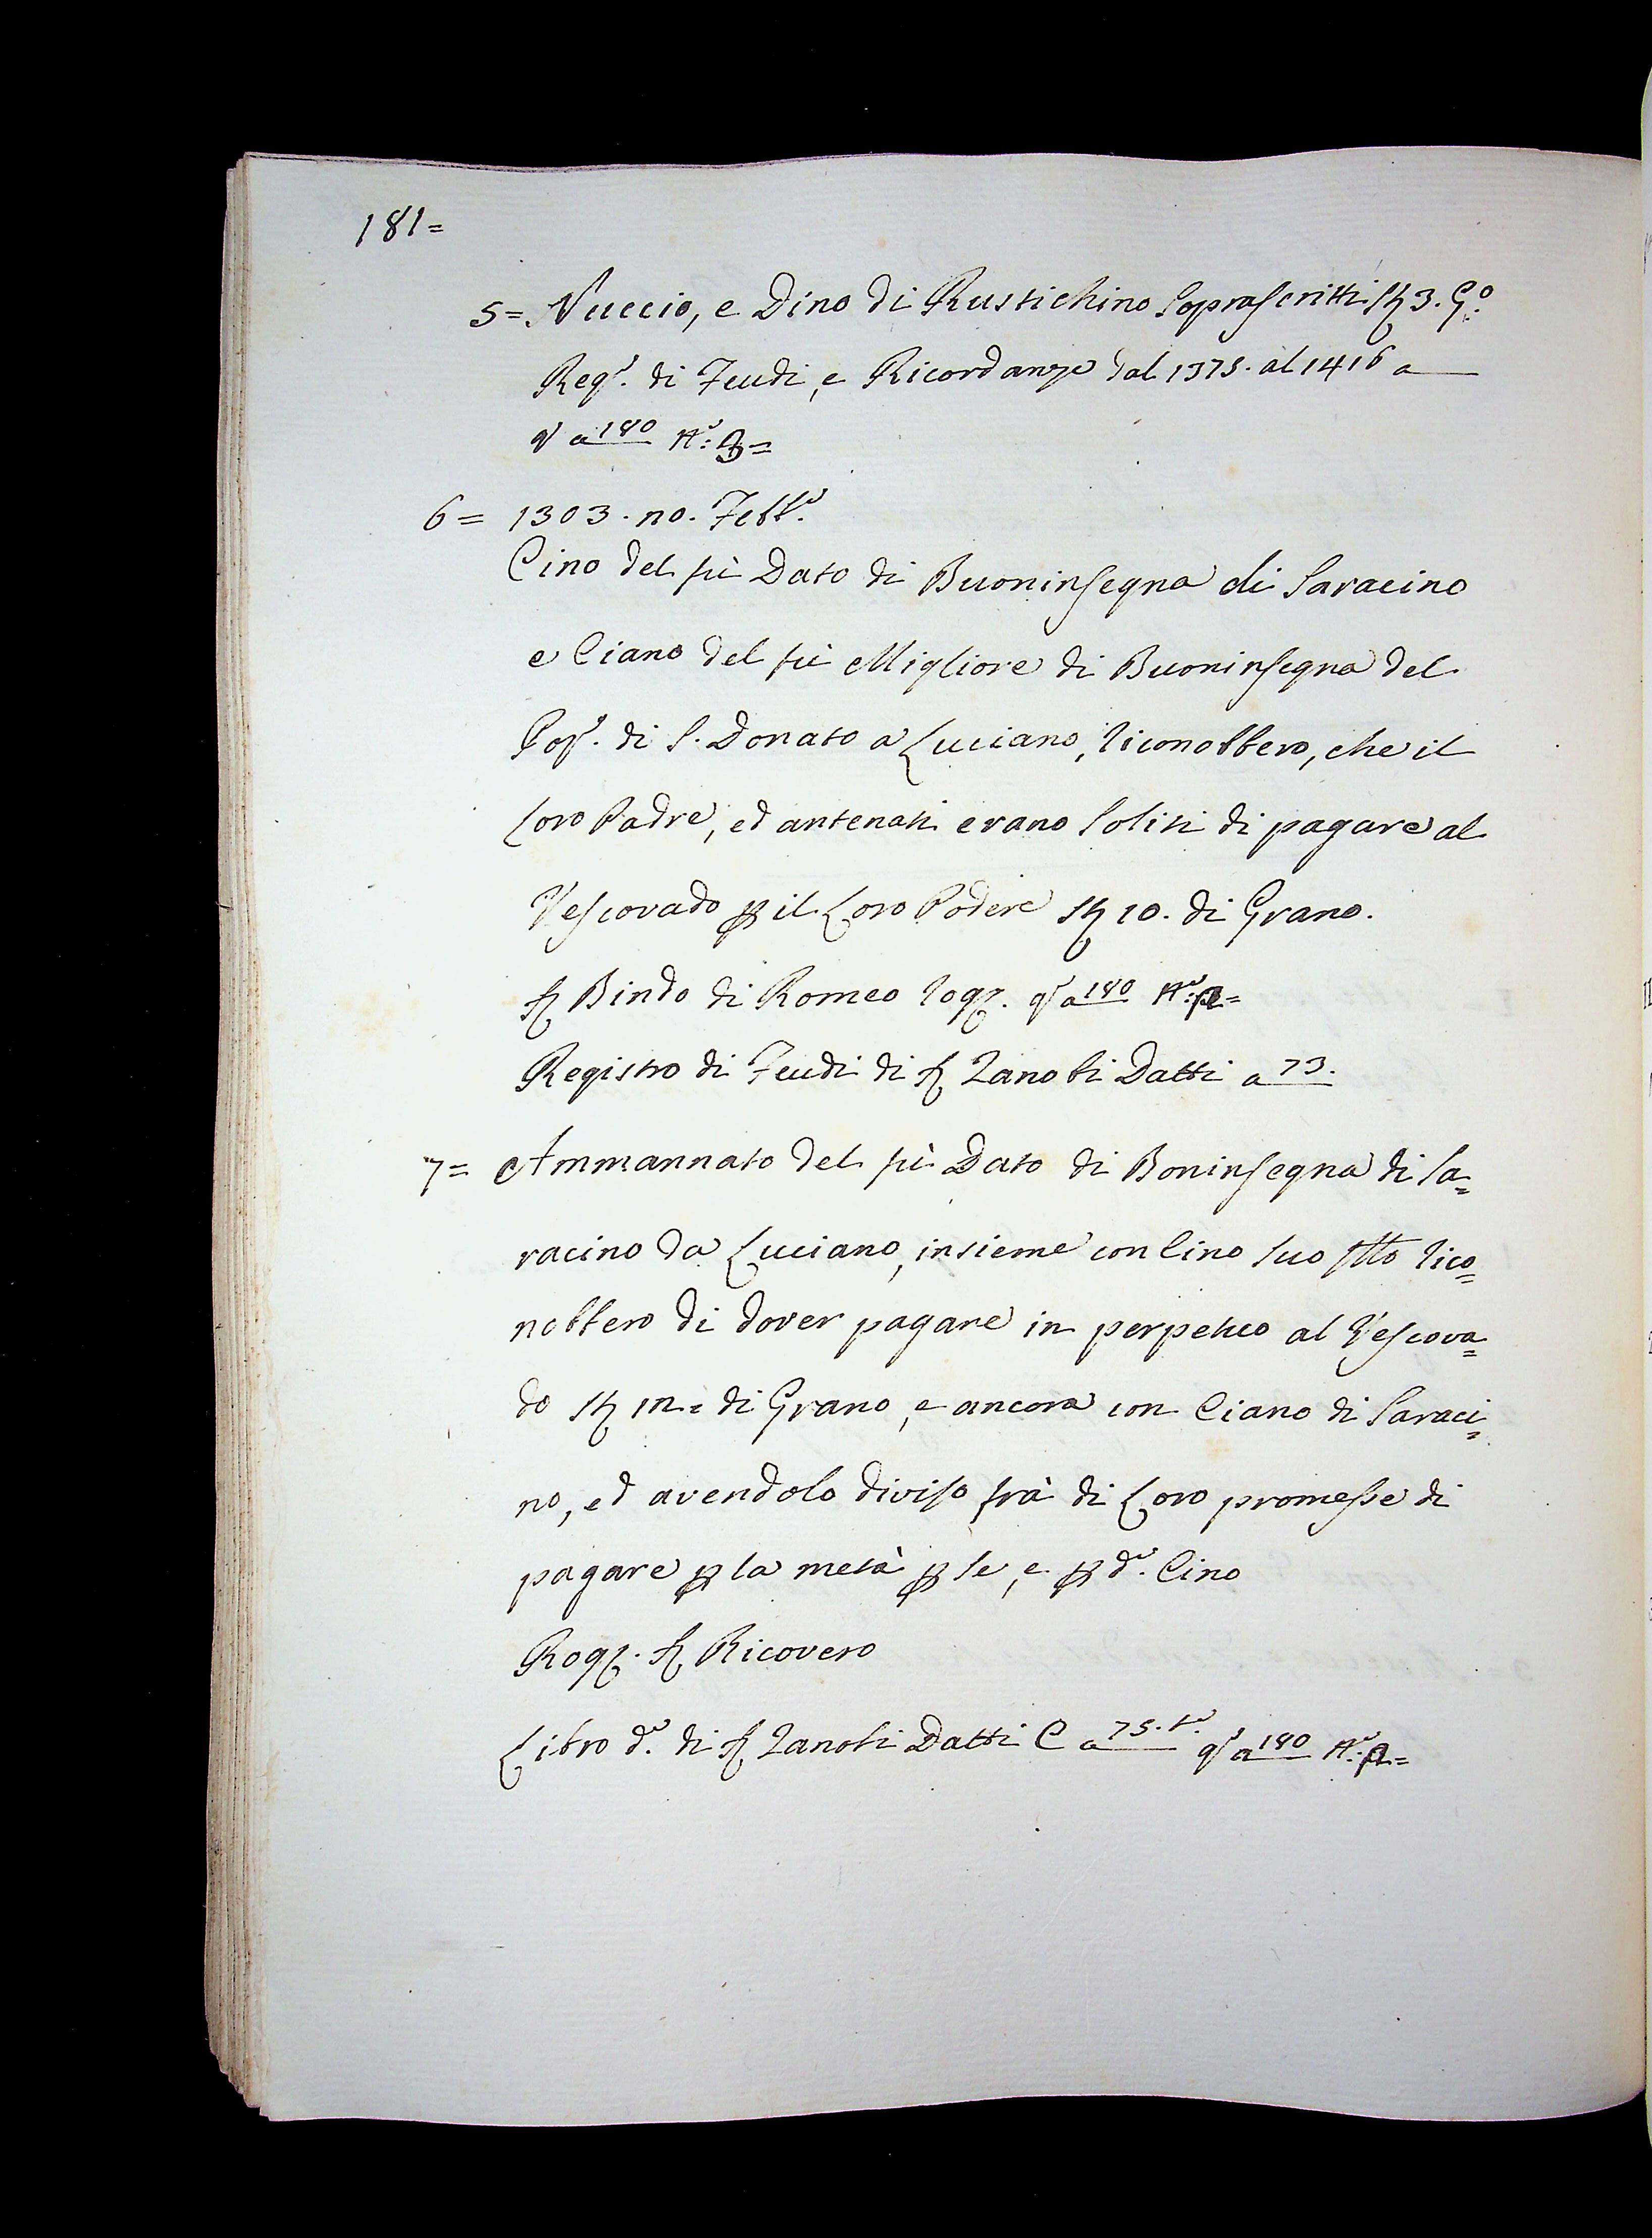 181=
5= Nuccio, e Dino di Rustichino Soprascritti St 3. G.o
Reg.o di Feudi, e Ricordanze dal 1375. al 1416 a
a 180 N.o:
6= 1303. no. Febb.o
Cino del fù Dato di Buoninsegna di Saracino
e Ciano del fù Migliore di Buoninsegna del
Pop.o di S. Donato a Luciano, riconobbero, che il
Loro Padre, ed antenati erano soliti di pagare al
Vescovado p il Loro Podere St 10. di Grano.
Sr Bindo di Romeo rog. a 180 N.o:
Registro di Feudi di Sr Zanobi Datti a 73.
7= Ammannato del fù Dato di Boninsegna di Sa=
racino da Luciano, insieme con Cino suo frello rico=
nobbero di dover pagare in perpetuo al Vescova=
do St di Grano, e ancora con Ciano di Saraci=
no, ed avendolo diviso frà di Loro promesse di
pagare p la metà p se, e p d.o Cino
Rog. Sr Ricovero
Libro d.o di Sr Zanobi Datti C a 75. t.o a 180 N.o: